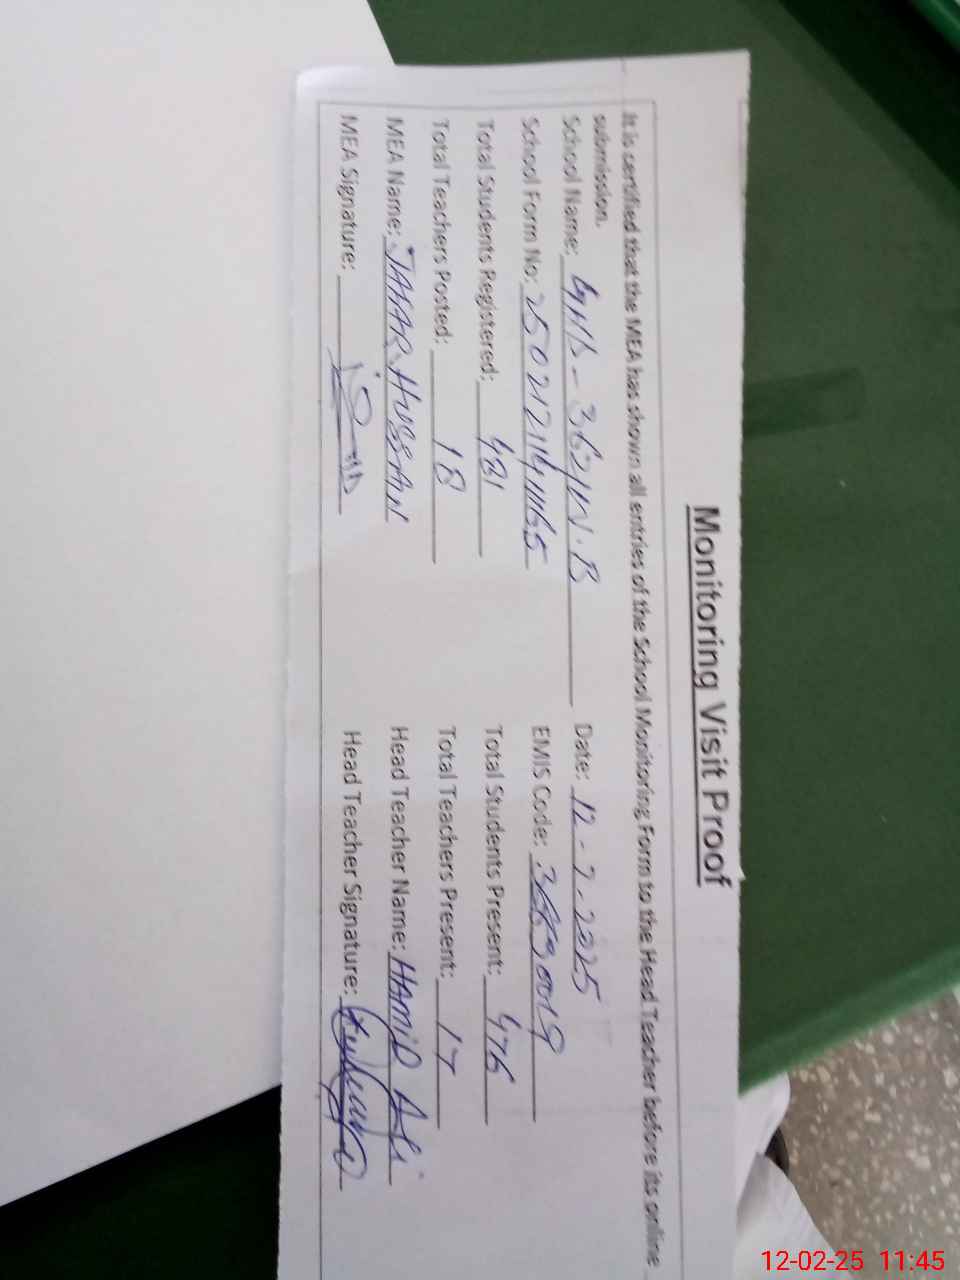 Monitoring Visit Proof
It is certified that the MEA has shown all entries of the School Monitoring Form to the Head Teacher before its online
submission.
School Name: GHS - 362/W.B Date: 12-2-2025
School Form No: 25021211411165 EMIS Code:
Total Students Registered: 481 Total Students Present: 476
Total Teachers Posted: 18 Total Teachers Present: 17
MEA Name: JAFAR HUSSAN Head Teacher Name: HAMID Ali
MEA Signature: Head Teacher Signature:
12-02-25 11:45